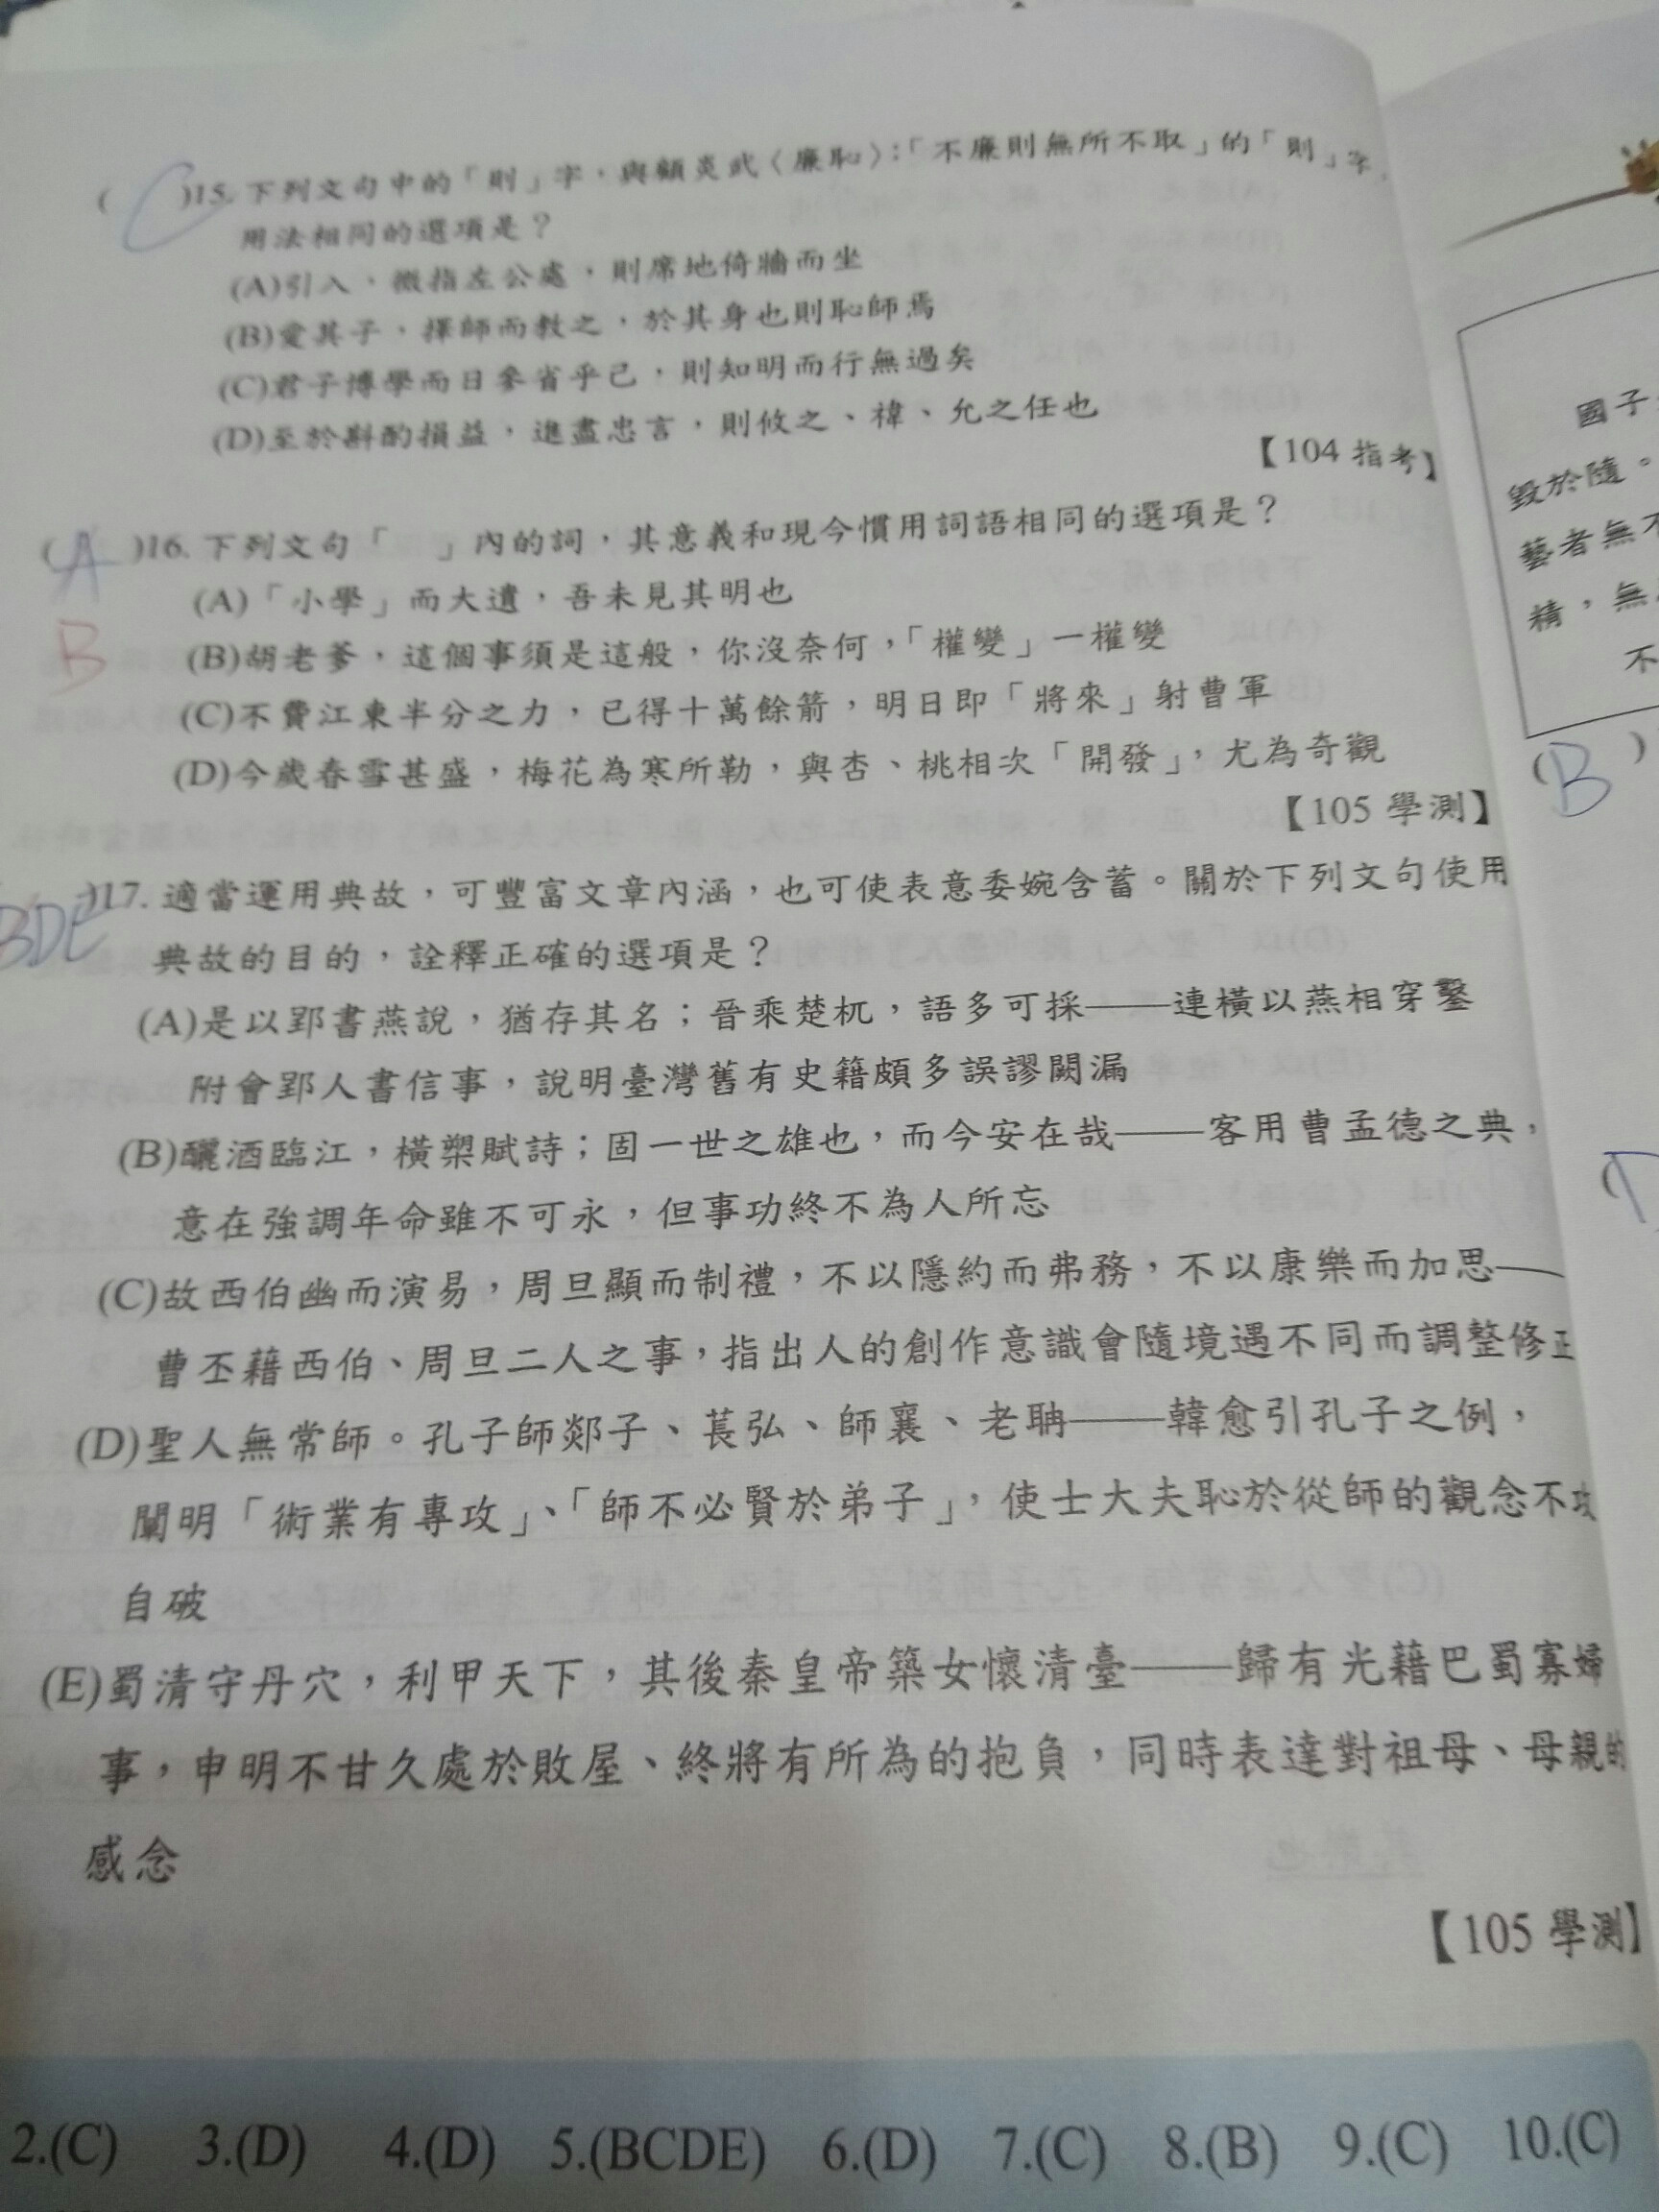 ( C )15. 下列文句中的「則」字，與顧炎武〈廉恥〉：「不廉則無所不取」的「則」字，
用法相同的選項是？
(A)引入，微指左公處，則席地倚牆而坐
(B)愛其子，擇師而教之，於其身也則恥師焉
(C)君子博學而日參省乎己，則知明而行無過矣
(D)至於斟酌損益，進盡忠言，則攸之、禕、允之任也
【104 指考】
( A )16. 下列文句「　」內的詞，其意義和現今慣用詞語相同的選項是？
B
(A)「小學」而大遺，吾未見其明也
(B)胡老爹，這個事須是這般，你沒奈何，「權變」一權變
(C)不費江東半分之力，已得十萬餘箭，明日即「將來」射曹軍
(D)今歲春雪甚盛，梅花為寒所勒，與杏、桃相次「開發」，尤為奇觀
【105 學測】
BDE )17. 適當運用典故，可豐富文章內涵，也可使表意委婉含蓄。關於下列文句使用
典故的目的，詮釋正確的選項是？
(A)是以郢書燕說，猶存其名；晉乘楚杌，語多可採——連橫以燕相穿鑿
附會郢人書信事，說明臺灣舊有史籍頗多誤謬闕漏
(B)釃酒臨江，橫槊賦詩；固一世之雄也，而今安在哉——客用曹孟德之典，
意在強調年命雖不可永，但事功終不為人所忘
(C)故西伯幽而演易，周旦顯而制禮，不以隱約而弗務，不以康樂而加思——
曹丕藉西伯、周旦二人之事，指出人的創作意識會隨境遇不同而調整修正
(D)聖人無常師。孔子師郯子、萇弘、師襄、老聃——韓愈引孔子之例，
闡明「術業有專攻」、「師不必賢於弟子」，使士大夫恥於從師的觀念不攻
自破
(E)蜀清守丹穴，利甲天下，其後秦皇帝築女懷清臺——歸有光藉巴蜀寡婦
事，申明不甘久處於敗屋、終將有所為的抱負，同時表達對祖母、母親的
感念
【105 學測】
2.(C) 3.(D) 4.(D) 5.(BCDE) 6.(D) 7.(C) 8.(B) 9.(C) 10.(C)
國子
毀於隨。
藝者無不
精，無
不
( B )
(